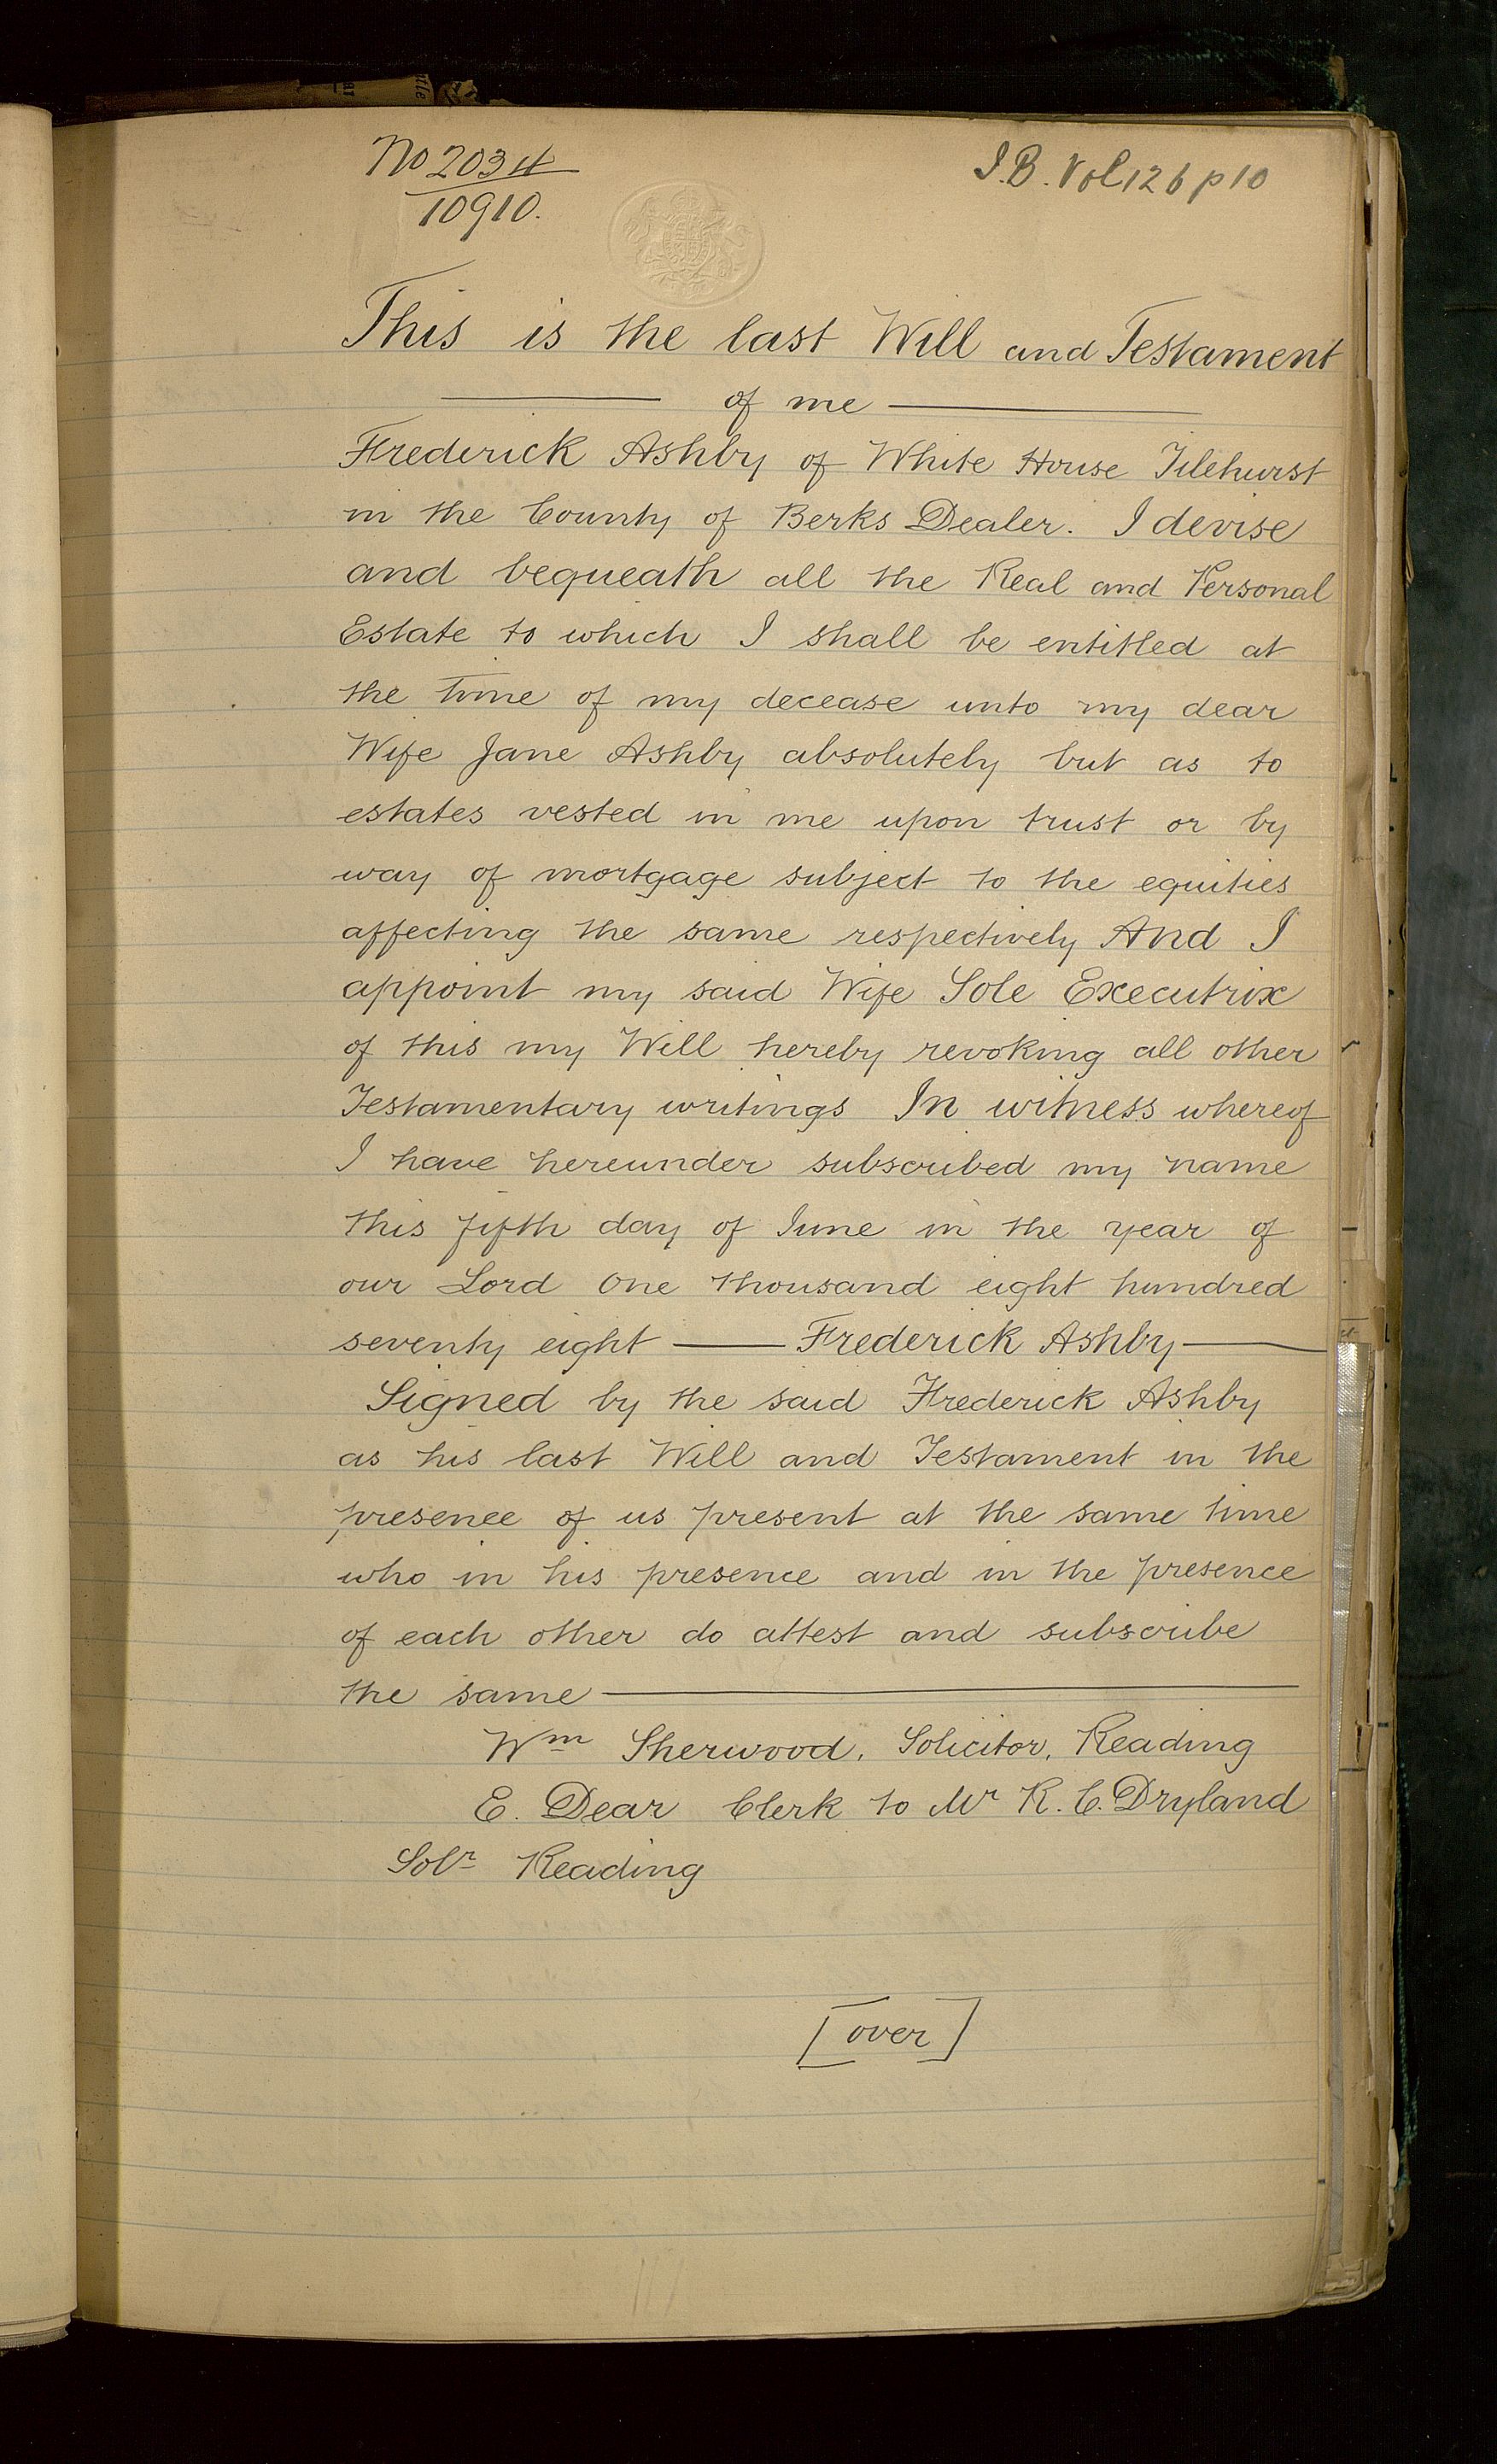 No 2034
10910.
I.B. Vol 126 p 10
This is the last Will and Testament
of me
Frederick Ashby of White House Tilehurst
in the County of Berks Dealer. I devise
and bequeath all the Real and Personal
Estate to which I shall be entitled at
the time of my decease unto my dear
Wife Jane Ashby absolutely but as to
estates vested in me upon trust or by
way of mortgage subject to the equities
affecting the same respectively And I
appoint my said Wife Sole Executrix
of this my Will hereby revoking all other
Testamentary writings In witness whereof
I have hereunder subscribed my name
this fifth day of June in the year of
our Lord One thousand eight hundred
seventy eight — Frederick Ashby —
Signed by the said Frederick Ashby
as his last Will and Testament in the
presence of us present at the same time
who in his presence and in the presence
of each other do attest and subscribe
the same —
Wm Sherwood. Solicitor, Reading
E. Dear Clerk to Mr R. C. Dryland
Solr Reading
[over]